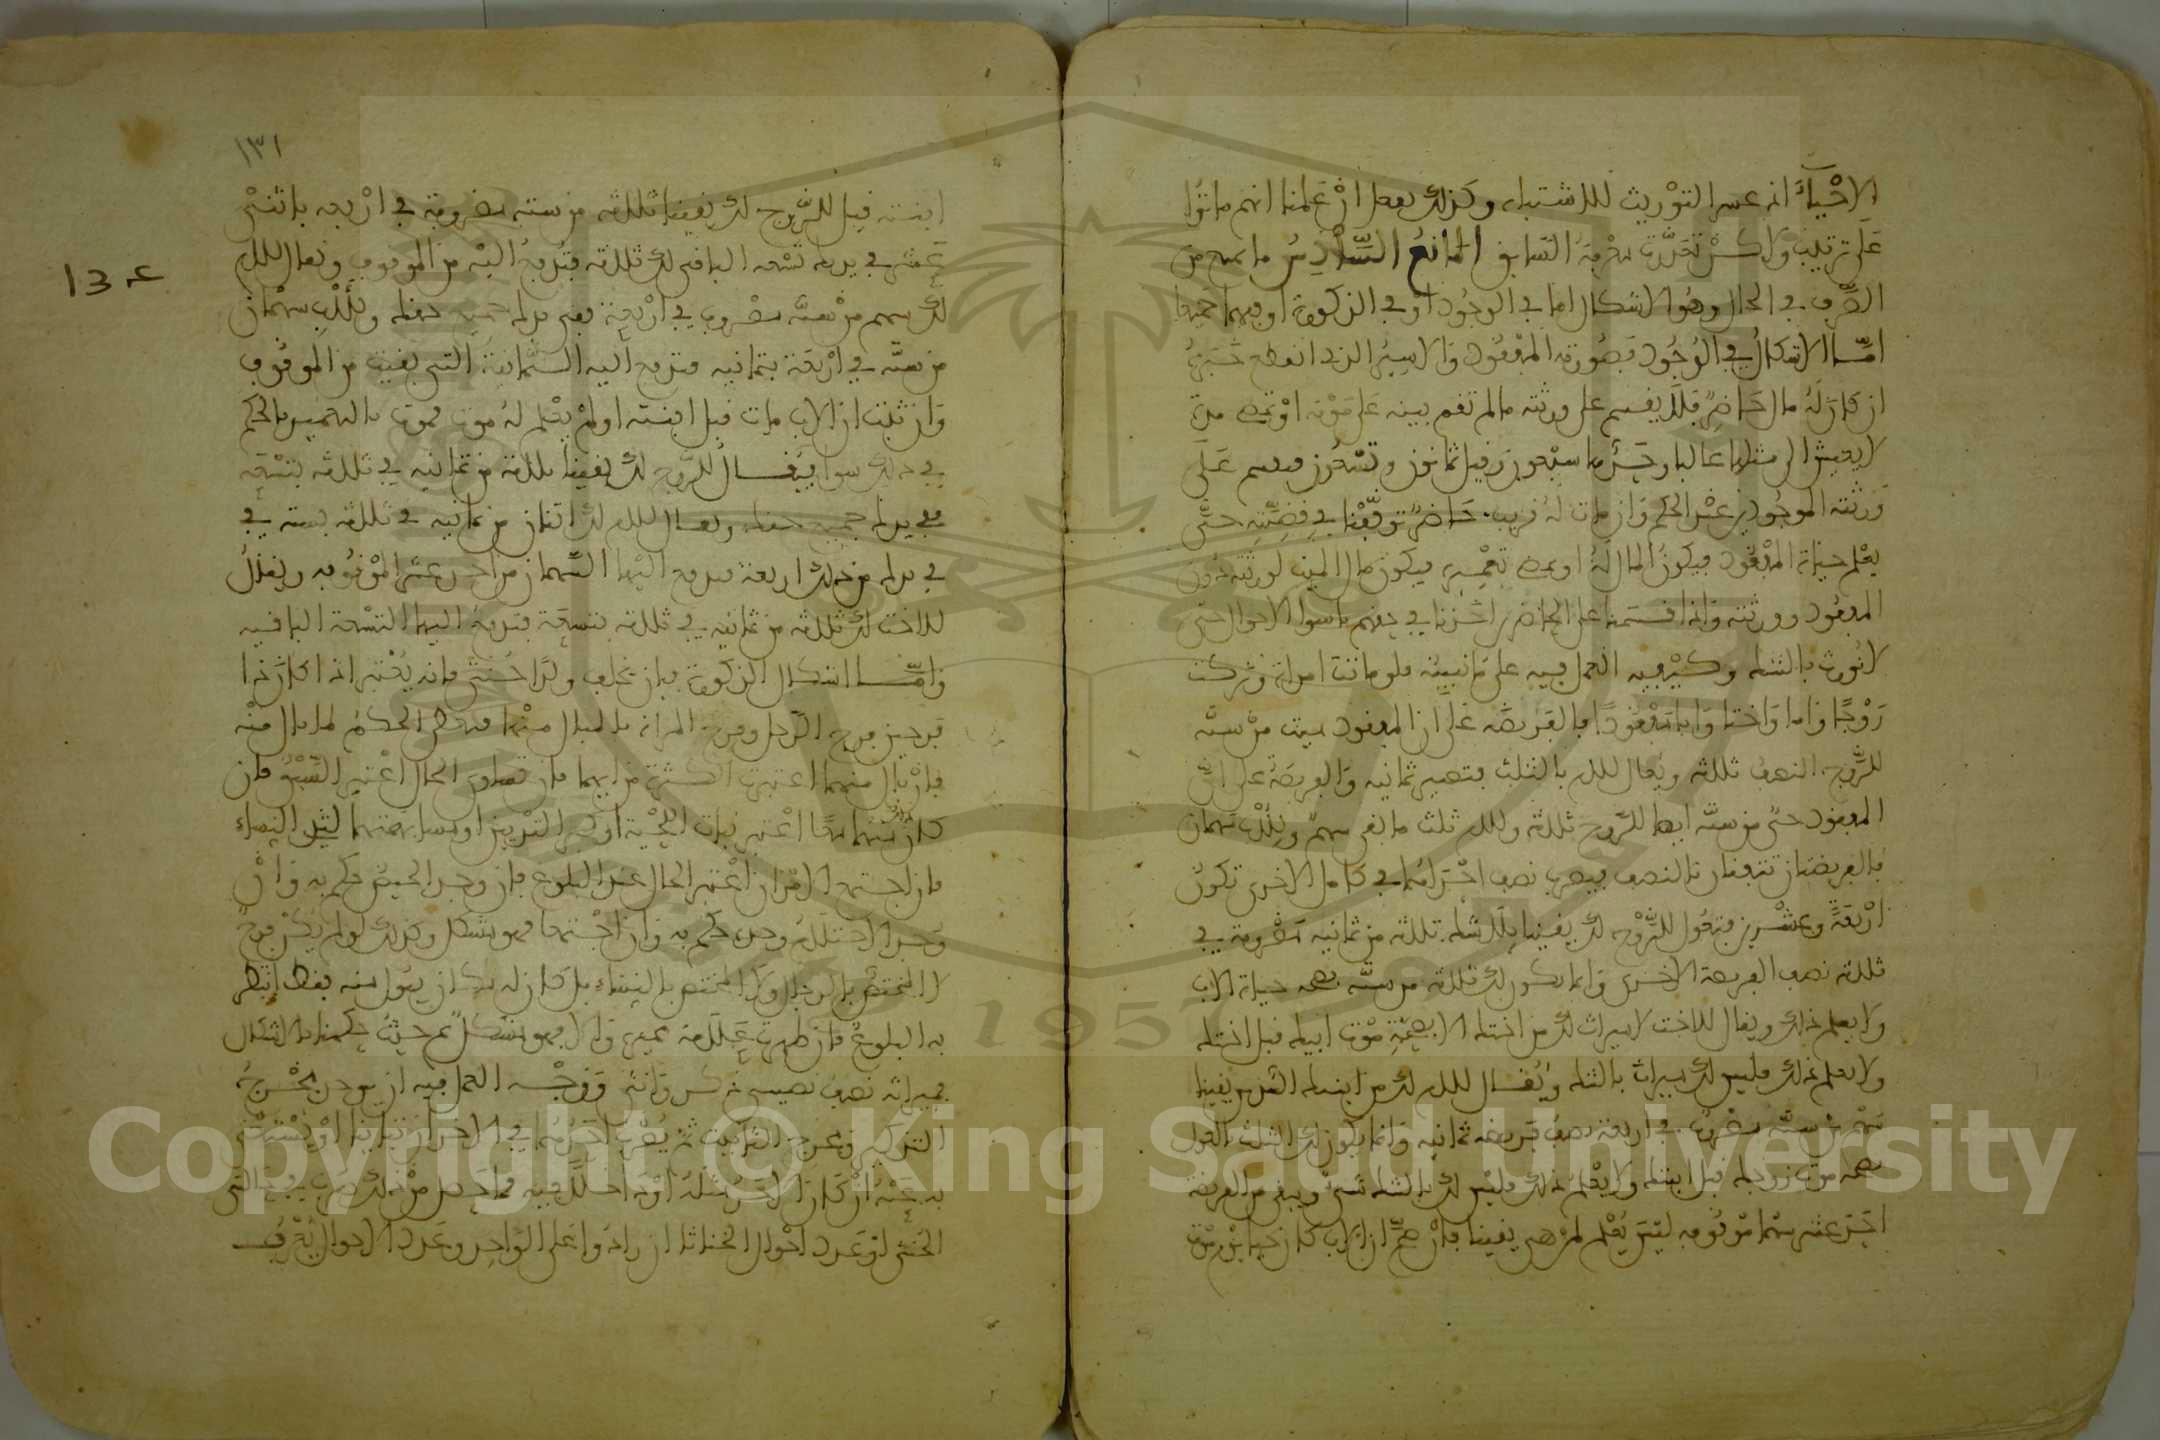 الاحياء انه عسر التوريث للاشتباه وكذلك يفعل ان علمنا انهم ماتوا
على ترتيب ولاكن تعذرت معرفة السابق المانع السادس ما يمنع من
الصرف في الحال وهو الاشكال اما في الوجود او في الذكورة او فيهما جميعا
امـا الاشكال في الوجود فصورته المفقود والاسير الذي انقطع خبره
ان كان له مال حاضر فلا يقسم على ورثته مالم تقم بينه على موته او تمض مدة
لا يعيش الى مثلها غالبا وحده ما سبعون وقيل ثمانون وتسعون فيقسم على
ورثته الموجودين عند الحكم وان مات له قريب حاضر توقفنا في قضيته حتى
يعلم حياة المفقود فيكون المال له او يمض تعميره فيكون مال الميت لورثته دون
المفقود وورثته واذا قسمنا على الحاضر اخذنا في حقهم باسوا الاحوال حتى
لا نورث بالشك وكيفية العمل فيه على ما نبينه فلو ماتت امراة وتركت
زوجا واما واختا وابا مفقودا فالفريضه على ان المفقود ميت من سته
للزوج النصف ثلاثه ويعال للام بالثلث فتصير ثمانيه والفريضة على ان
المفقود حي من سته ايضا للزوج ثلاثه وللام ثلث ما بقي سهم وللاب سهمان
فالفريضتان تتفقان بالنصف فيضرب نصف احداهما في كامل الاخرى تكون
اربعة وعشرين فتقول للزوج لك يقينا بلا شك ثلاثه من ثمانيه مضروبة في
ثلاثه نصف الفريضة الاخرى وانما يكون لك ثلاثه من سته بصحة حياة الاب
ولا يعلم ذلك ويقال للاخت لا ميراث لك من اختك الا بصحة موت ابيك قبل اختك
ولا يعلم ذلك فليس لك ميراث بالشك ويقـال للام لك من ابنتك السدس يقينا
سهم من سته مضروب في اربعه نصف فريضه ثمانيه وانما يكون لك الثلث بالعول
بصحه موت زوجك قبل ابنتك ولا يعلم ذلك فليس لك بالشك شيء ويبقى من الفريضة
احد عشر سهما موقوفه ليس يعلم لمن هي يقينا فان صح ان الاب كان حيا يوم موت
١٣١
ابنته قيل للزوج لك يقينا ثلاثه من سته مضروبة في اربعه باثنى
عشر في يدك تسعه الباقي لك ثلاثه فتدفع اليه من الموقوف ويقال للام
لك سهم من سته مضروب في اربعة ففي يدك جميع حقك وللاب سهمان
من سته في اربعة بثمانيه فتدفع اليه الثمانية التي بقيت من الموقوف
وان ثبت ان الاب مات قبل ابنته او لم يعلم له موت فموت بالتعمير فالحكم
في ذلك سوا فيقـال للزوج لك يقينا ثلاثة من ثمانيه في ثلاثه بتسعه
ففي يدك جميع حقك ويقـال للام لك اثنان من ثمانيه في ثلاثه بسته في
في يدك من ذلك اربعة فيدفع اليها السهمان من احد عشر الموقوفه ويقال
للاخت لك ثلاثه من ثمانيه في ثلاثه بتسعة فتدفع اليها التسعة الباقيه
وامـا اشكال الذكورة فان تخلف ولدا خنثى فانه يختبر اذا كان ذا
فرجين فرج الرجل وفرج المراة بالمبال منهما فيعطى الحكم لما بال منه
فان بال منهما اعتبرت الكثرة من ايهما فان تساوى الحال اعتبر السبق فان
كان منهما معا اعتبر نبات اللحية او كبر الثديين او مشابهتهما لثدي النساء
فان اجتمع الامران اعتبر الحال عند البلوغ فان وجد الحيض حكم به وان
وجد الاحتلام وحده حكم به وان اجتمعا فهو مشكل وكذلك لو لم يكن فرج
لا المختص بالرجال ولا المختص بالنساء بل كان له مكان يبول منه فقط انتظر
به البلوغ فان ظهرت علامة مميزه والا فهو مشكل ثم حيث حكمنا بالاشكال
فميراثه نصف نصيبي ذكر وانثى ووجـه العمل فيه ان يوخذ مخرج
التذكير ومخرج التانيث ثم يضرب احدهما في الاخر ان تباينا او يستغنى
به عنه ان كان الاخر مثله او داخلا فيه فما حصل من ذلك ضرب في حالتي
الخنثى او عدد احوال الخناثا ان زادوا على الواحد وعدد الاحوال يعرف
134
Copyright © King Saud University
1957